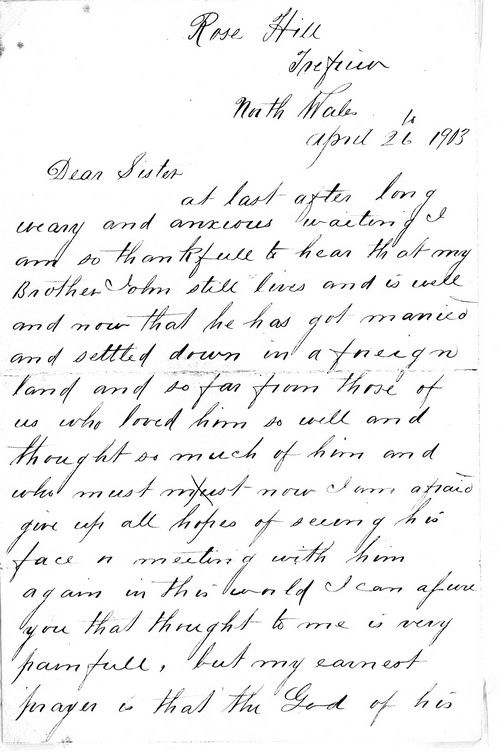 Rose Hill
Trefriw
North Wales
April 26th 1903
Dear Sister
at last after long
weary and anxious waiting I
am so thankfull to hear that my
Brother John still lives and is well
and now that he has got married
and settled down in a foreign
land and so far from those of
us who loved him so well and
thought so much of him and
who must must now I am afraid
give up all hopes of seeing his
face or meeting with him
again in this world I can asure
you that thought to me is very
painfull, but my earnest
prayer is that the God of his